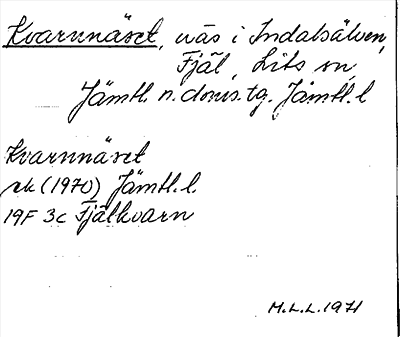 Kvarnnäset, näs i Indalsälven,
Fjäl, Lits sn,
Jämtl. n. doms. tg. Jämtl. l
Kvarnnäset
ek (1970) Jämtl. l.
19F 3c Fjälkvarn
M.L.L. 1971